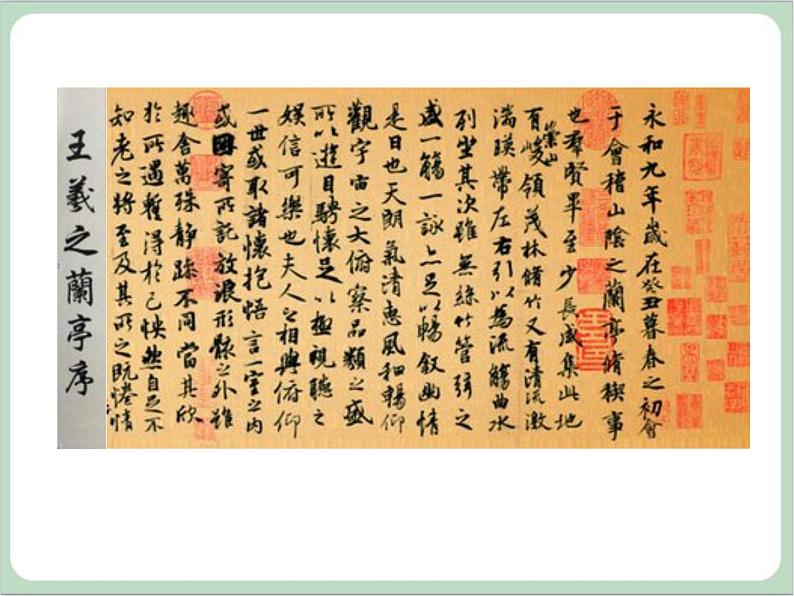 永和九年歲在癸丑暮春之初會
于會稽山陰之蘭亭脩稧事
也羣賢畢至少長咸集此地
有崇山峻領茂林脩竹又有清流激
湍暎帶左右引以為流觴曲水
列坐其次雖無絲竹管弦之
盛一觴一詠亦足以暢叙幽情
是日也天朗氣清惠風和暢仰
觀宇宙之大俯察品類之盛
所以遊目騁懷足以極視聽之
娛信可樂也夫人之相與俯仰
一世或取諸懷抱悟言一室之內
或因寄所託放浪形骸之外雖
趣舍萬殊靜躁不同當其欣
於所遇暫得於己怏然自足不
知老之將至及其所之既惓情
王羲之蘭亭序